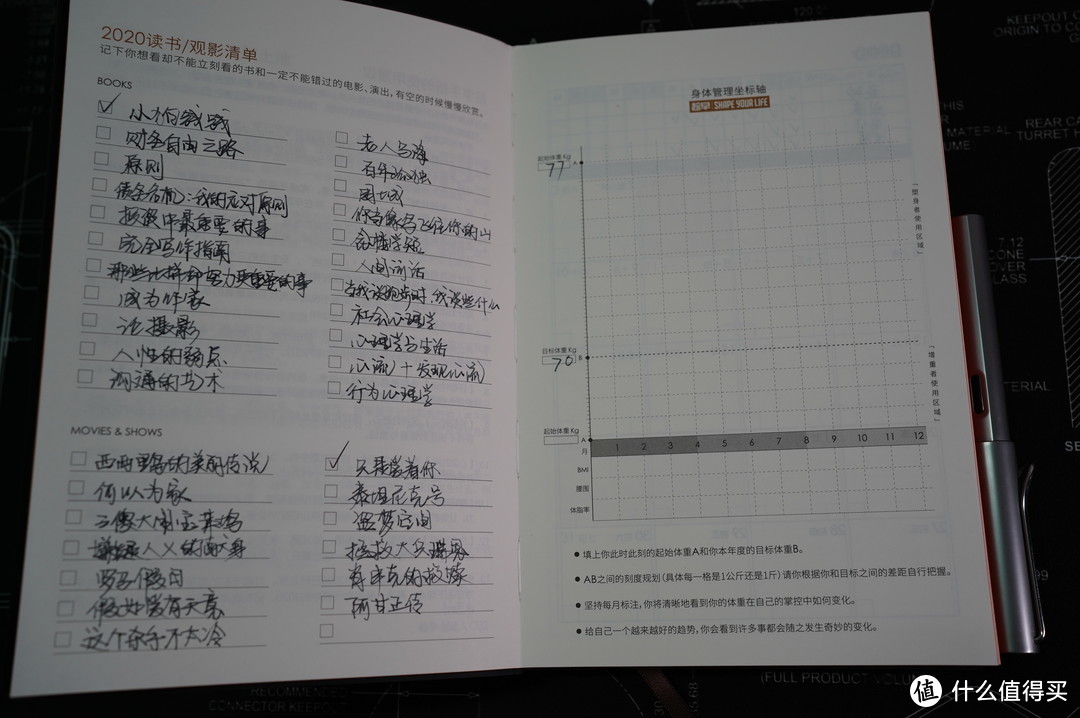 2020读书/观影清单
记下你想看却不能立刻看的书和一定不能错过的电影、演出,有空的时候慢慢欣赏。
BOOKS
小狗钱钱
财务自由之路
原则
债务危机:我的应对原则
投资中最重要的事
完全写作指南
那些比拼命努力更重要的事
成为作家
论摄影
人性的弱点
沟通的艺术
老人与海
百年孤独
围城
你当像鸟飞往你的山
人间词话
当我谈跑步时,我谈些什么
社会心理学
心理学与生活
心流+发现心流
行为心理学
MOVIES & SHOWS
西西里的美丽传说
何以为家
三傻大闹宝莱坞
嫌疑人X的献身
罗马假日
假如爱有天意
这个杀手不太冷
只是爱着你
泰坦尼克号
盗梦空间
拯救大兵瑞恩
肖申克的救赎
阿甘正传
身体管理坐标轴
趁早 SHAPE YOUR LIFE
起始体重Kg
77
A
「塑身者使用区域」
目标体重Kg
70
B
「增重者使用区域」
起始体重Kg
A
月 1 2 3 4 5 6 7 8 9 10 11 12
BMI
腰围
体脂率
● 填上你此时此刻的起始体重A和你本年度的目标体重B。
● AB之间的刻度规划(具体每一格是1公斤还是1斤)请你根据你和目标之间的差距自行把握。
● 坚持每月标注,你将清晰地看到你的体重在自己的掌控中如何变化。
● 给自己一个越来越好的趋势,你会看到许多事都会随之发生奇妙的变化。
KEEPOUT
ORIGIN TO CO
THIS
MATERIAL
REAR CA
TURRET H
7.12
CONE
OVER
GLASS
MATERIAL
RECOMMENDED
CONNECTOR KEEPOUT
(FULL PRODUCT VOLUME)
值 什么值得买